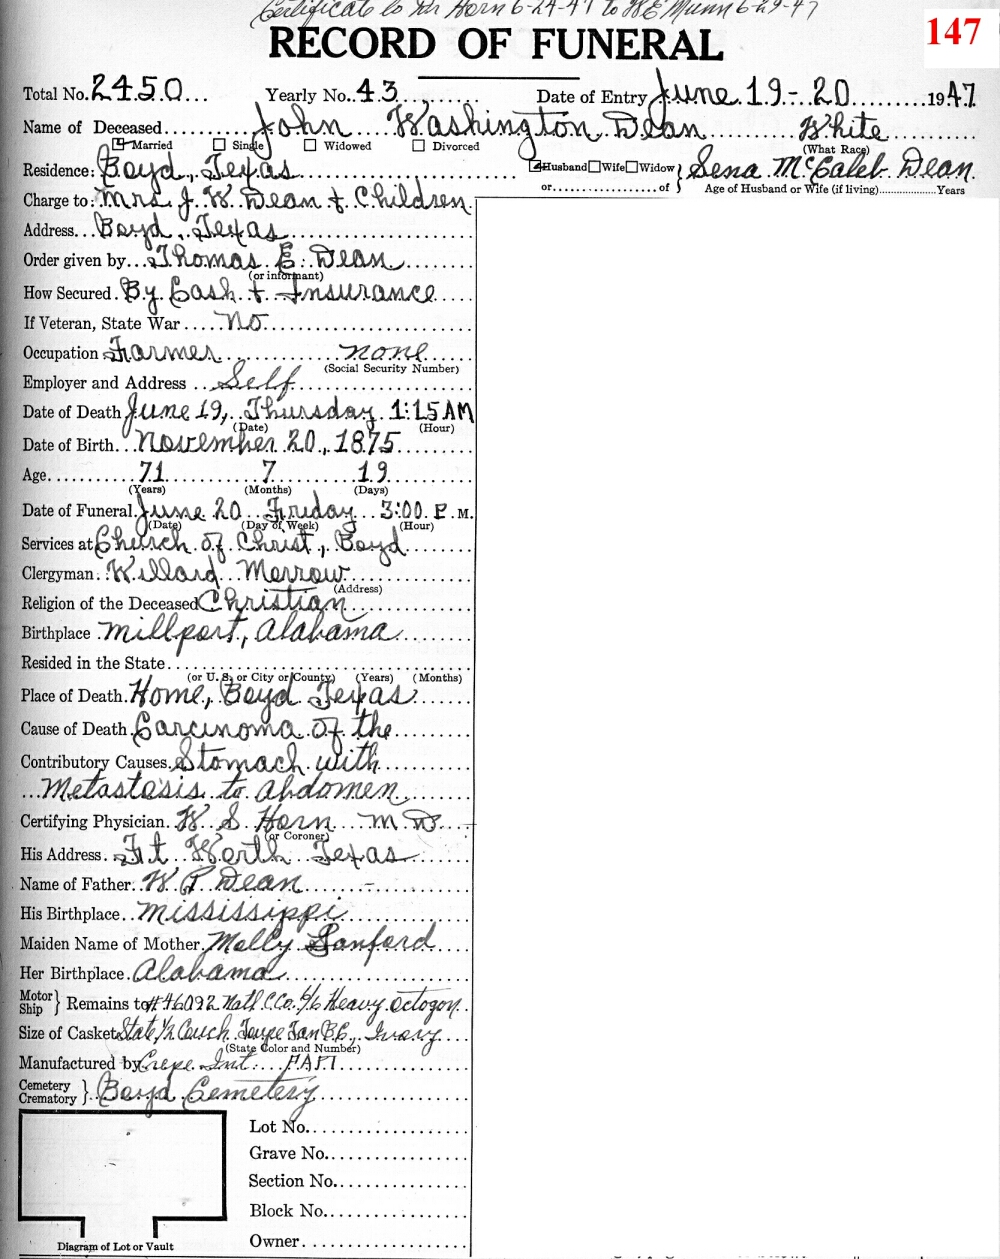 Certificate to Dr Horn 6-24-47 to H E Munn 6-29-47
147
RECORD OF FUNERAL
Total No. 2450 Yearly No. 43 Date of Entry June 19-20 1947
Name of Deceased John Washington Dean White
Married Single Widowed Divorced (What Race)
Residence: Boyd, Texas Husband Wife Widow } Sena McCaleb Dean
or of Age of Husband or Wife (if living) Years
Charge to: Mrs. J. W. Dean & Children
Address Boyd, Texas
Order given by Thomas E. Dean
(or informant)
How Secured By Cash & Insurance
If Veteran, State War No
Occupation Farmer none
(Social Security Number)
Employer and Address Self
Date of Death June 19, Thursday 1:15 AM
(Date) (Hour)
Date of Birth November 20, 1875
Age 71 7 19
(Years) (Months) (Days)
Date of Funeral June 20 Friday 3:00 P.M.
(Date) (Day of Week) (Hour)
Services at Church of Christ, Boyd
Clergyman Willard Morrow
(Address)
Religion of the Deceased Christian
Birthplace Millport, Alabama
Resided in the State
(or U. S. or City or County) (Years) (Months)
Place of Death Home, Boyd Texas
Cause of Death Carcinoma of the
Contributory Causes Stomach with
Metastasis to Abdomen
Certifying Physician W S Horn M D
(or Coroner)
His Address Ft Worth Texas
Name of Father W P Dean
His Birthplace Mississippi
Maiden Name of Mother Molly Sanford
Her Birthplace Alabama
Motor Ship } Remains to #46092 Natl C Co. 6/6 Heavy Octogon
Size of Casket State 1/2 Couch Taupe Tan B.C., Ivory
(State Color and Number)
Manufactured by Crepe Int.
Cemetery Crematory } Boyd Cemetery
Lot No.
Grave No.
Section No.
Block No.
Owner
Diagram of Lot or Vault